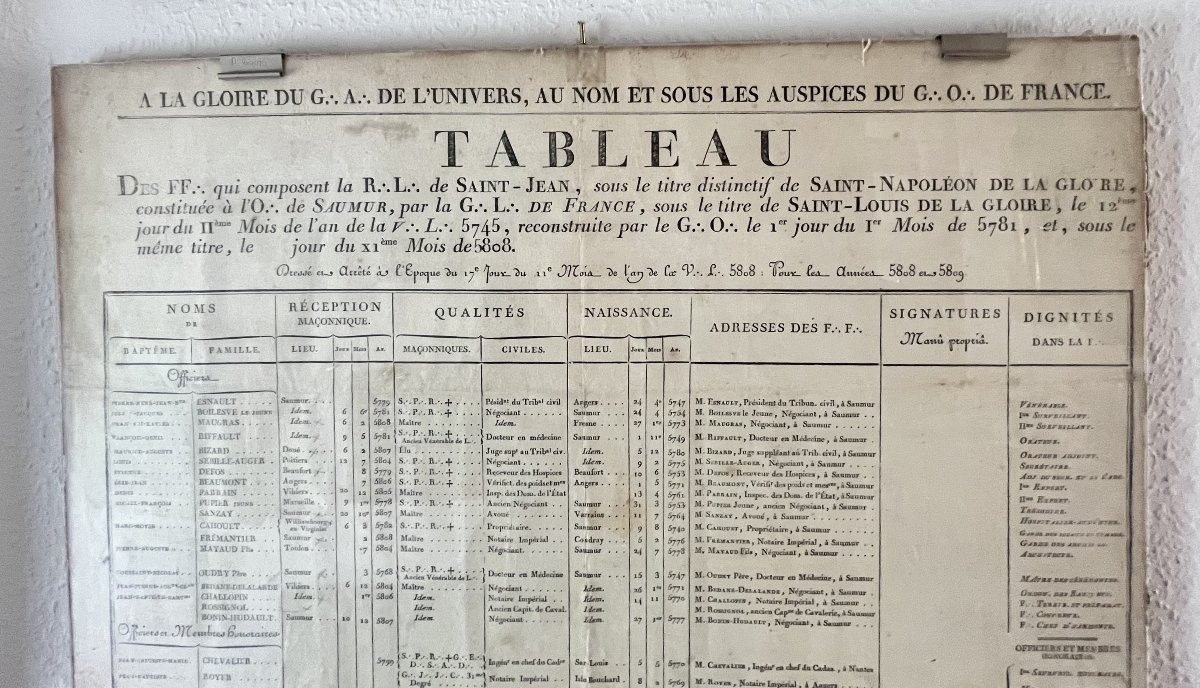 A LA GLOIRE DU G∴ A∴ DE L'UNIVERS, AU NOM ET SOUS LES AUSPICES DU G∴ O∴ DE FRANCE.
TABLEAU
DES FF∴ qui composent la R∴ L∴ de SAINT-JEAN, sous le titre distinctif de SAINT-NAPOLÉON DE LA GLOIRE,
constituée à l'O∴ de SAUMUR, par la G∴ L∴ DE FRANCE, sous le titre de SAINT-LOUIS DE LA GLOIRE, le 12ème
jour du IIème Mois de l'an de la V∴ L∴ 5745, reconstruite par le G∴ O∴ le 1er jour du Ier Mois de 5781, et, sous le
même titre, le jour du XIème Mois de 5808.
Dressé et Arrêté à l'Epoque du 17e Jour du 11e Mois de l'an de la V∴ L∴ 5808 : Pour les Années 5808 et 5809
NOMS DE RÉCEPTION MAÇONNIQUE. QUALITÉS NAISSANCE. ADRESSES DES F∴ F∴ SIGNATURES Manû propriâ. DIGNITÉS DANS LA
BAPTÊME. FAMILLE. LIEU. Jour Mois An. MAÇONNIQUES. CIVILES. LIEU. Jour Mois An.
Officiers
ESNAULT Saumur 5779 S∴ P∴ R∴ + Présidt du Tribal civil Angers 24 4e 5747 M. ESNAULT, Président du Tribun. civil, à Saumur VÉNÉRABLE.
BOILESVE LE JEUNE Idem. 6 6e 5781 S∴ P∴ R∴ + Négociant Saumur 24 4 5754 M. BOILESVE le Jeune, Négociant, à Saumur Ier SURVEILLANT.
MAUGRAS Idem. 6 2 5808 Maître Idem. 27 1er 5773 M. MAUGRAS, Négociant, à Saumur IIme SURVEILLANT.
RIFFAULT Idem. 9 5 5781 S∴ P∴ R∴ + Ancien Vénérable de L∴ Docteur en médecine Saumur 1 11e 5749 M. RIFFAULT, Docteur en Médecine, à Saumur ORATEUR.
BIZARD Doué 6 2 5807 Élu Juge supt au Tribal civ. Idem. 5 12 5780 M. BIZARD, Juge suppléant au Trib. civil, à Saumur ORATEUR ADJOINT.
SEBILLE-AUGER Poitiers 12 7 5804 S∴ P∴ R∴ + Négociant Idem. 9 2 5775 M. SEBILLE-AUGER, Négociant, à Saumur SECRÉTAIRE.
DEFOS Beaufort 8 5779 S∴ P∴ R∴ + Receveur des Hospices Beaufort 10 6 M. DEFOS, Receveur des Hospices, à Saumur
BEAUMONT Angers 7 5806 S∴ P∴ R∴ + Vérificr. des poids et mes Angers 1 5 5771 M. BEAUMONT, Vérifr des poids et mesres, à Saumur Ier EXPERT.
PARRAIN Vihiers 20 12 5805 Maître Insp. des Dom. de l'État 13 4 5761 M. PARRAIN, Inspec. des Dom. de l'État, à Saumur IIme EXPERT.
PUPIER JEUNE Marseille 5778 S∴ P∴ R∴ + Ancien Négociant Saumur 31 3 5753 M. PUPIER Jeune, ancien Négociant, à Saumur TRÉSORIER.
SANZAY Saumur 20 10e 5807 Maître Avoué Varrains 11 7 5764 M. SANZAY, Avoué, à Saumur
CAHOUET Williamsbourg en Virginie 6 8 5782 S∴ P∴ R∴ + Propriétaire. Saumur 9 8 5740 M. CAHOUET, Propriétaire, à Saumur
FRÉMANTIER Saumur 2 5808 Maître Notaire Impérial Coudray 5 2 5776 M. FREMANTIER, Notaire Impérial, à Saumur
MAYAUD Fils Toulon 7 5804 Maître Négociant. Saumur 24 7 5778 M. MAYAUD Fils, Négociant, à Saumur ARCHITECTE.
OUDRY Père Saumur 3 5768 S∴ P∴ R∴ + Ancien Vénérable de L∴ Docteur en Médecine Saumur 15 3 5747 M. OUDRY Père, Docteur en Médecine, à Saumur MAÎTRE DES CÉRÉMONIES.
BEDANE-DELALANDE Vihiers 6 12 5804 Maître Négociant Idem. 26 1er 5771 M. BEDANE-DELALANDE, Négociant, à Saumur
CHALLOPIN Idem. 1er 5806 Idem. Notaire Impérial Idem. 14 11 5770 M. CHALLOPIN, Notaire Impérial, à Saumur
ROSSIGNOL Idem. Ancien Capit. de Caval. Idem. M. ROSSIGNOL, ancien Capne de Cavalerie, à Saumur
BONIN-HUDAULT Saumur 10 12 5807 Idem. Négociant. Idem. 27 1er 5777 M. BONIN-HUDAULT, Négociant, à Saumur
Officiers et Membres Honoraires OFFICIERS ET MEMBRES HONORAIRES
CHEVALIER 5799 S∴ P∴ R∴ + G∴ E∴ D∴ S∴ A∴ D∴ Ingénr en chef du Cadre Sar-Louis 5 5 5770 M. CHEVALIER, Ingénr en chef du Cadas., à Nantes
BOYER G∴ J∴ J∴ C∴ 31me Degré Notaire Impérial Isle Bouchard 8 2 5769 M. BOYER, Notaire Impérial, à Angers